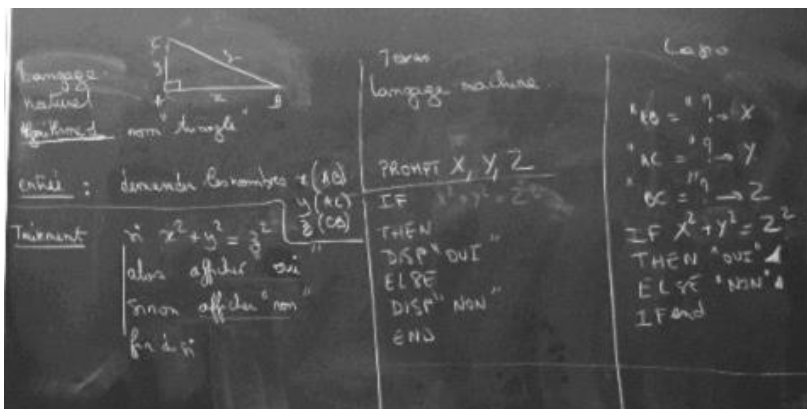 Langage
naturel
C
y
z
A
x
B
Algorithme
nom "triangle"
entrée : demander les nombres x (AB)
y (AC)
z (CB)
Traitement si x² + y² = z²
alors afficher "oui"
sinon afficher "non"
fin de si
Texas
langage machine
PROMPT X, Y, Z
IF X²+Y²=Z²
THEN
DISP "OUI"
ELSE
DISP "NON"
END
Casio
"AB = "? → X
"AC = "? → Y
"BC = "? → Z
IF X² + Y² = Z²
THEN "OUI" ◢
ELSE "NON" ◢
IFend